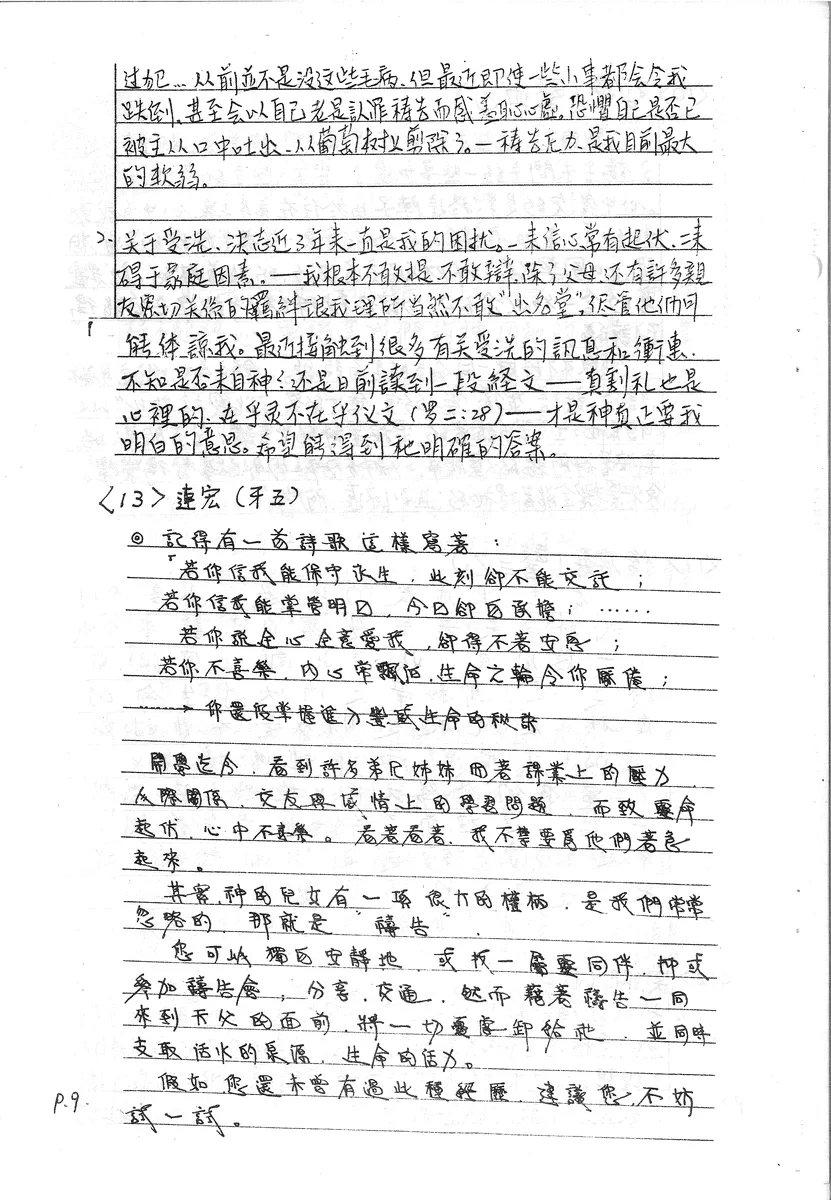 过犯…从前並不是没这些毛病,但最近即使一些小事都会令我
跌倒,甚至会以自己老是認罪禱告而感羞恥心虛,恐懼自己是否已
被主从口中吐出、从葡萄树上剪除了。一禱告无力是我目前最大
的軟弱。
2. 关于受洗、決志近3年来一直是我的困扰。一来信心常有起伏、二来
碍于家庭因素。——我根本不敢提、不敢辯,除了父母,还有許多親
友密切关係的羈絆讓我理所当然不敢"出名堂",尽管他们可
能体諒我。最近接触到很多有关受洗的訊息和衝惠,
不知是否来自神;还是日前讀到一段経文——真割礼也是
心裡的、在乎灵不在乎仪文(罗二:28)——才是神真正要我
明白的意思。希望能得到祂明確的答案。
〈13〉連宏(牙五)
◎ 記得有一首詩歌這樣寫著:
「若你信我能保守永生,此刻卻不能交託;
若你信我能掌管明日,今日卻自承擔;……
若你說全心全意愛我,卻得不著安息;
若你不喜樂,內心常飄泊,生命之輪令你厭倦;
………→ 你還沒掌握進入豐盛生命的秘訣
開學迄今,看到許多弟兄姊妹因著課業上的壓力
人際關係,交友與感情上的學習問題,而致靈命
起伏,心中不喜樂。看著看著,我不禁要爲他們著急
起來。
其實,神的兒女有一項很大的權柄,是我們常常
忽略的,那就是"禱告"。
您可以獨自安靜地,或找一屬靈同伴,抑或
參加禱告會;分享,交通,然而藉著禱告一同
來到天父的面前,將一切憂慮卸給祂,並同時
支取活水的泉源,生命的活力。
假如您還未曾有過此種經歷,建議您,不妨
試一試。
P.9.